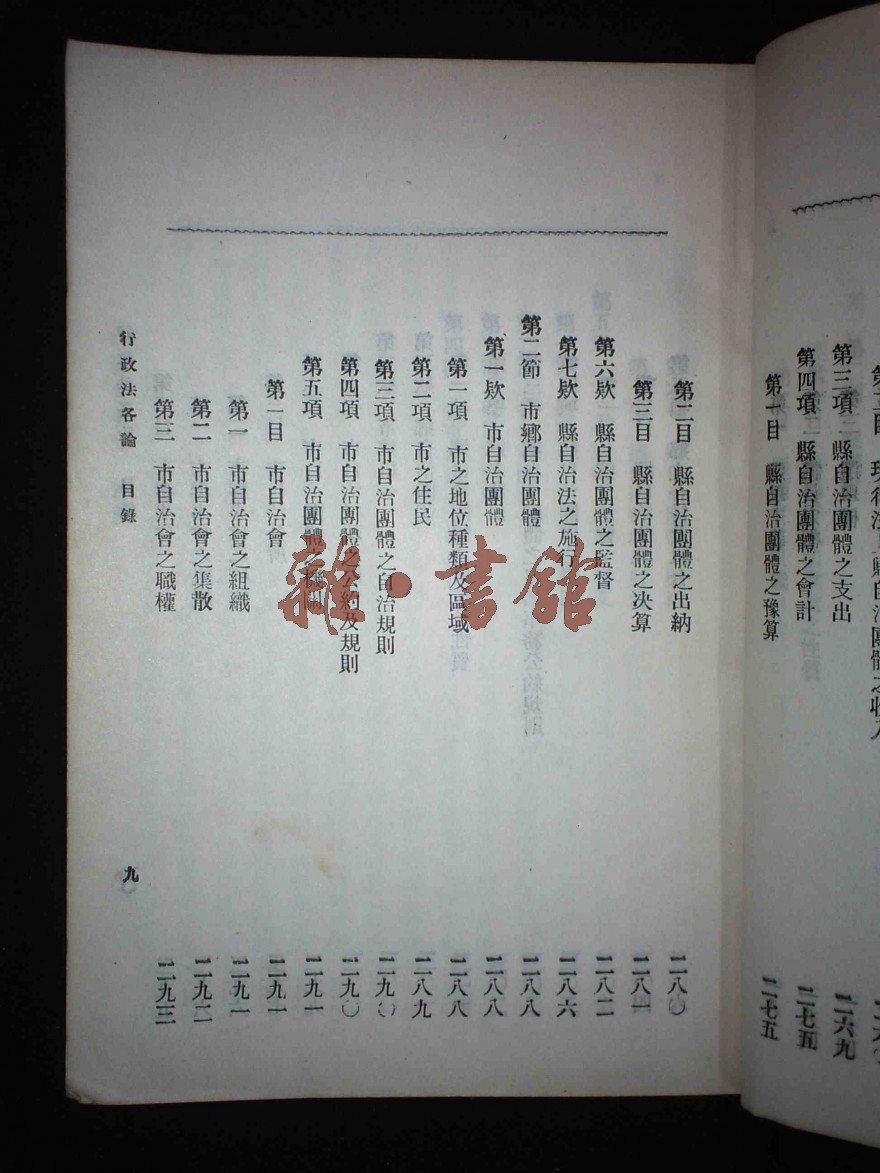 第三項　縣自治團體之支出　二六九
第四項　縣自治團體之會計　二七五
第一目　縣自治團體之豫算　二七五
第二目　縣自治團體之出納　二八〇
第三目　縣自治團體之决算　二八一
第六欵　縣自治團體之監督　二八二
第七欵　縣自治法之施行　二八六
第二節　市鄉自治團體　二八八
第一欵　市自治團體　二八八
第一項　市之地位種類及區域　二八八
第二項　市之住民　二八九
第三項　市自治團體之自治規則　二九〇
第四項　市自治團體之公約及規則　二九〇
第五項　市自治團體之機關　二九一
第一目　市自治會　二九一
第一　市自治會之組織　二九一
第二　市自治會之集散　二九二
第三　市自治會之職權　二九三
行政法各論　目錄　九
雜·書館